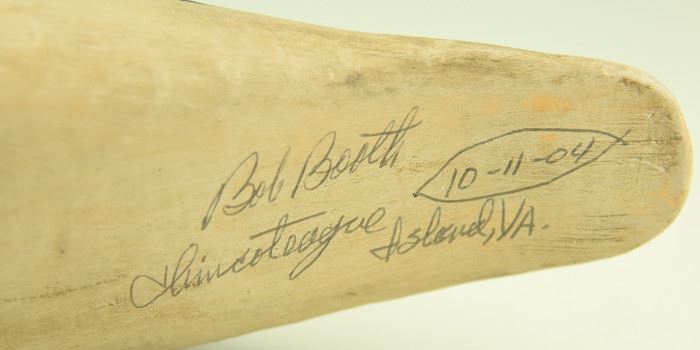 Bob Booth
Chincoteague Island, VA.
10-11-04